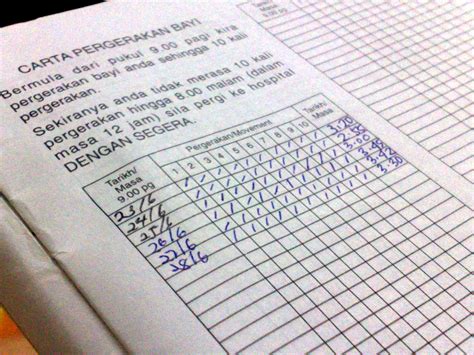 CARTA PERGERAKAN BAYI
Bermula dari pukul 9.00 pagi kira
pergerakan bayi anda sehingga 10 kali
pergerakan.
Sekiranya anda tidak merasa 10 kali
pergerakan hingga 8.00 malam (dalam
masa 12 jam) sila pergi ke hospital
DENGAN SEGERA.
Tarikh/
Masa
9.00 pg
Pergerakan/Movement
1 2 3 4 5 6 7 8 9 10
Tarikh/
Masa
23/6 / / / / / / / / / / 3.20
24/6 / / / / / / / / / /
25/6 / / / / / / / / / /
26/6 / / / / / / / / / /
27/6 / / / / / / / / / /
28/6
Masa
9.00 pg
1 2 3